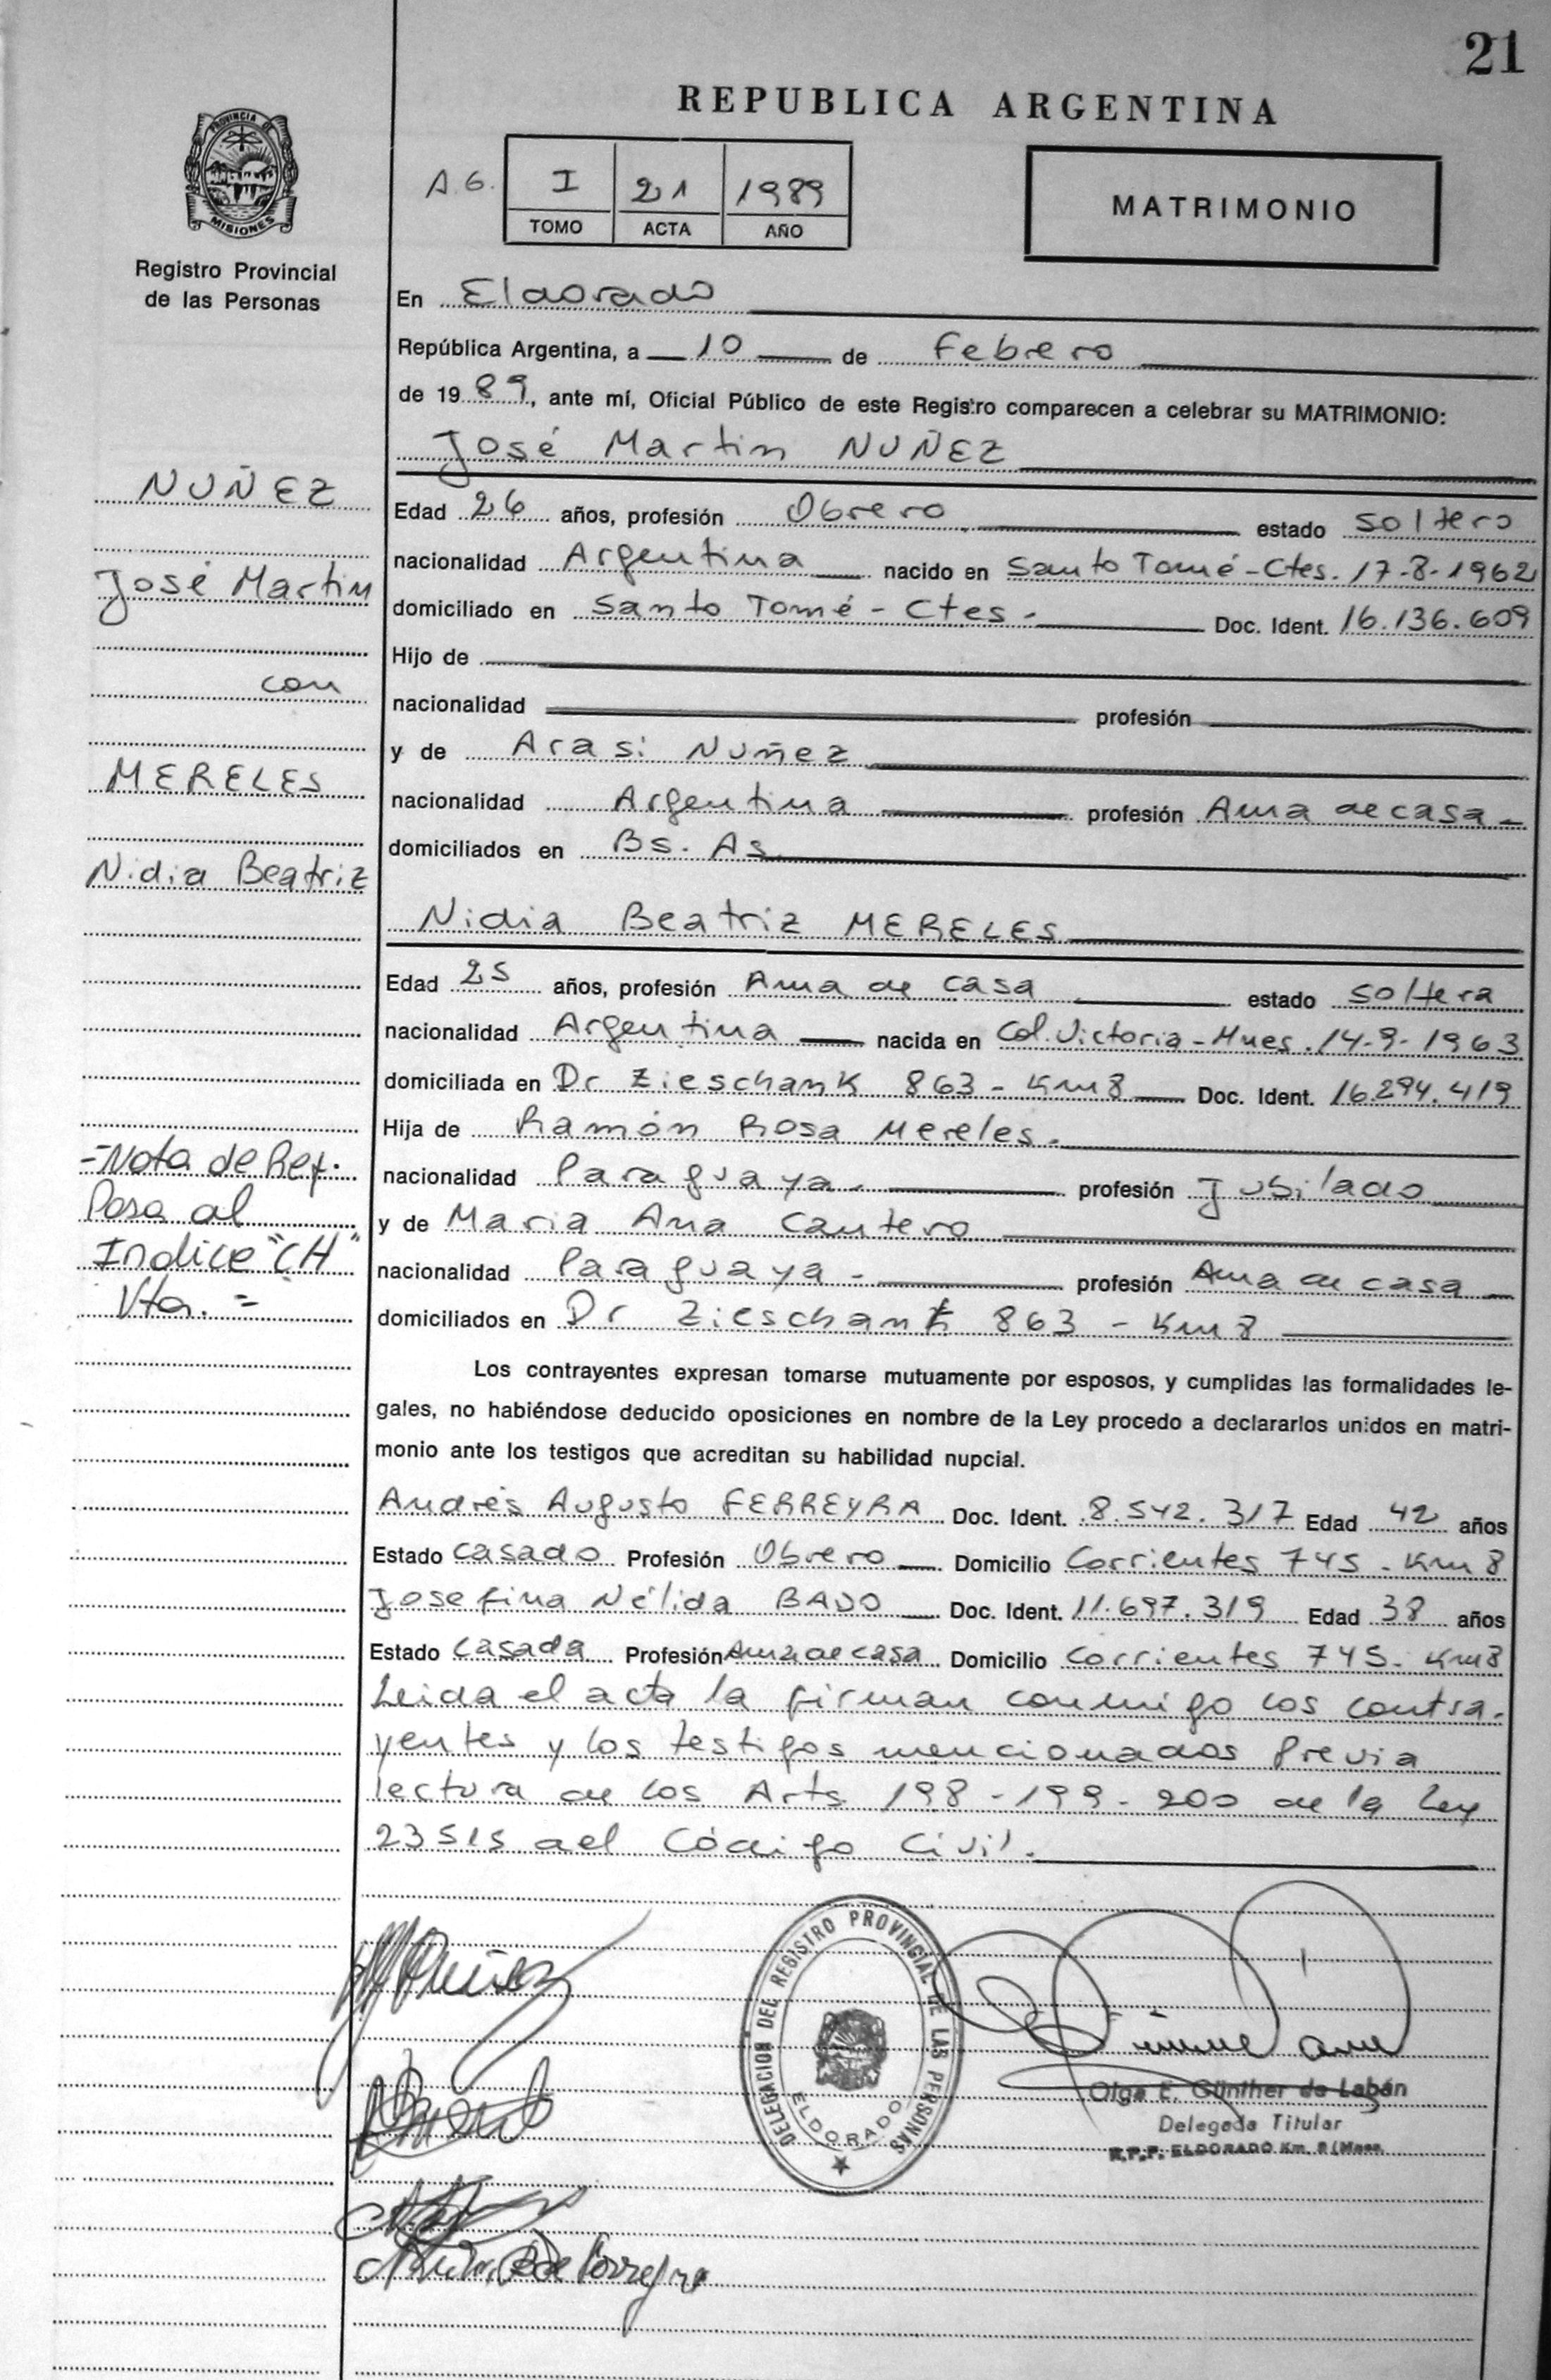 21
REPUBLICA ARGENTINA
PROVINCIA DE
MISIONES
Registro Provincial
de las Personas
A.G.
I 21 1989
TOMO ACTA AÑO
MATRIMONIO
En Eldorado
República Argentina, a 10 de Febrero
de 1989, ante mí, Oficial Público de este Registro comparecen a celebrar su MATRIMONIO:
José Martin NUÑEZ
NUÑEZ
Edad 26 años, profesión Obrero estado soltero
nacionalidad Argentina nacido en Santo Tomé-Ctes. 17-8-1962
José Martin
domiciliado en Santo Tomé - Ctes - Doc. Ident. 16.136.609
Hijo de
con
nacionalidad profesión
y de Arasi Nuñez
MERELES
nacionalidad Argentina profesión Ama de casa -
domiciliados en Bs. As
Nidia Beatriz
Nidia Beatriz MERELES
Edad 25 años, profesión Ama de casa estado soltera
nacionalidad Argentina nacida en Col. Victoria - Mnes. 14-9-1963
domiciliada en Dr Zieschank 863 - Km 8 Doc. Ident. 16.294.419
Hija de Ramón Rosa Mereles.
-Nota de Ref.
nacionalidad Paraguaya - profesión Jubilado
Pasa al
y de Maria Ana Cantero
Indice "CH"
nacionalidad Paraguaya - profesión Ama de casa
Vta. =
domiciliados en Dr Zieschank 863 - Km 8
Los contrayentes expresan tomarse mutuamente por esposos, y cumplidas las formalidades le-
gales, no habiéndose deducido oposiciones en nombre de la Ley procedo a declararlos unidos en matri-
monio ante los testigos que acreditan su habilidad nupcial.
Andrés Augusto FERREYRA Doc. Ident. 8.542.317 Edad 42 años
Estado Casado Profesión Obrero Domicilio Corrientes 745 - Km 8
Josefina Nélida BADO Doc. Ident. 11.697.319 Edad 38 años
Estado Casada Profesión Ama de casa Domicilio Corrientes 745 - Km 8
Leida el acta la firman conmigo los contra-
yentes y los testigos mencionados previa
lectura de los Arts 198 - 199 - 200 de la Ley
23515 del Código Civil.
DELEGACION DEL REGISTRO PROVINCIAL DE LAS PERSONAS
ELDORADO
Olga E. Günther de Labán
Delegada Titular
R.P.P. ELDORADO Km. 8 (Mnes.